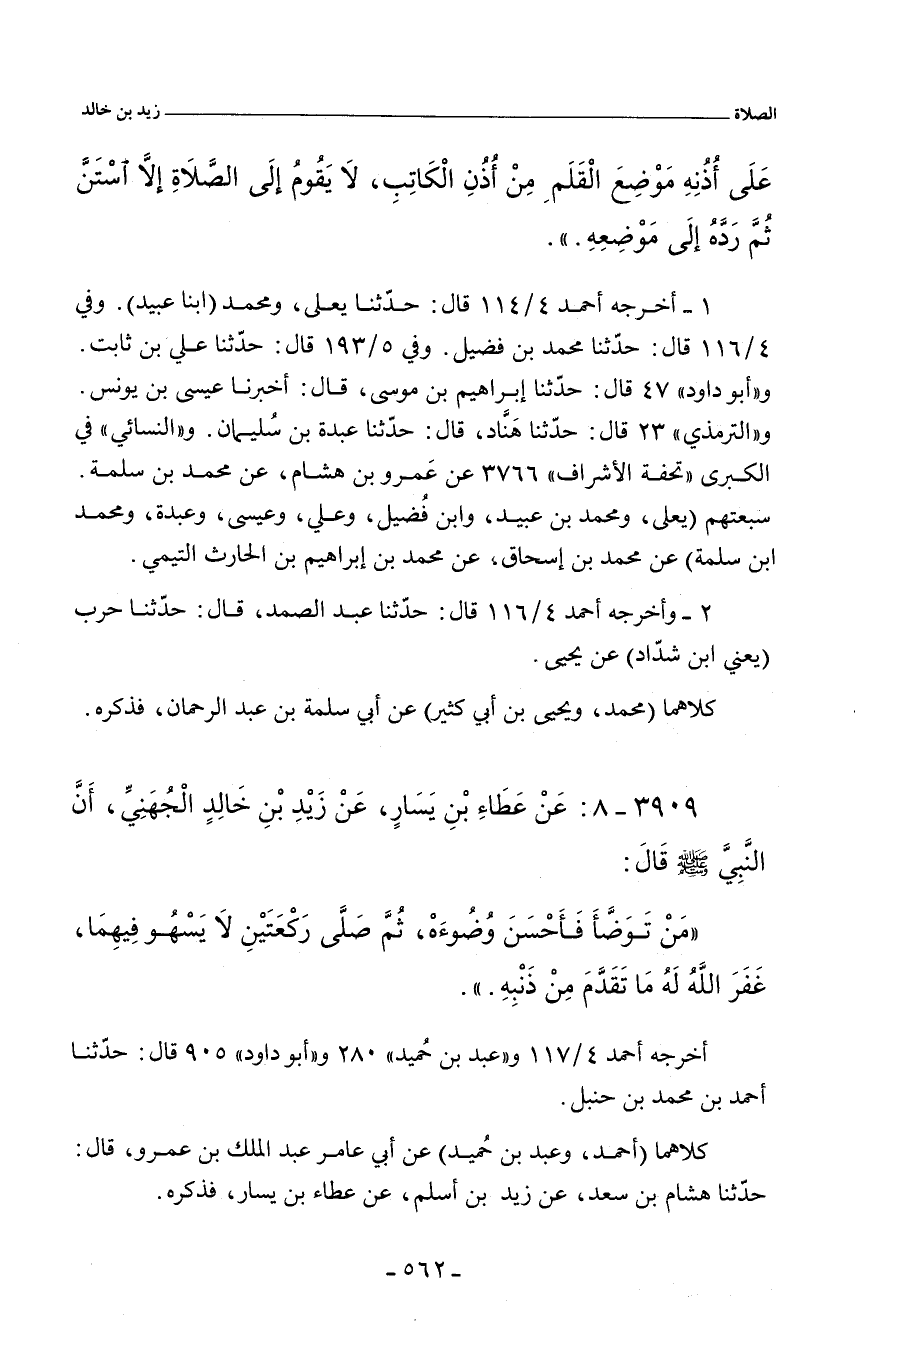 الصلاة ــــــــــ زيد بن خالد
عَلَى أُذُنِهِ مَوْضِعَ الْقَلَمِ مِنْ أُذُنِ الْكَاتِبِ، لَا يَقُومُ إِلَى الصَّلَاةِ إِلَّا ٱسْتَنَّ
ثُمَّ رَدَّهُ إِلَى مَوْضِعِهِ.».
١ ـ أخرجه أحمد ٤/ ١١٤ قال: حدّثنا يعلى، ومحمد (ابنا عبيد). وفي
٤/ ١١٦ قال: حدّثنا محمد بن فضيل. وفي ٥/ ١٩٣ قال: حدّثنا علي بن ثابت.
و«أبو داود» ٤٧ قال: حدّثنا إبراهيم بن موسى، قال: أخبرنا عيسى بن يونس.
و«الترمذي» ٢٣ قال: حدّثنا هَنَّاد، قال: حدّثنا عبدة بن سُليمان. و«النسائي» في
الكبرى «تحفة الأشراف» ٣٧٦٦ عن عَمرو بن هشام، عن محمد بن سلمة.
سبعتهم (يعلى، ومحمد بن عبيد، وابن فُضيل، وعلي، وعيسى، وعبدة، ومحمد
ابن سلمة) عن محمد بن إسحاق، عن محمد بن إبراهيم بن الحارث التيمي.
٢ ـ وأخرجه أحمد ٤/ ١١٦ قال: حدّثنا عبد الصمد، قال: حدّثنا حرب
(يعني ابن شدّاد) عن يحيى.
كلاهما (محمد، ويحيى بن أبي كثير) عن أبي سلمة بن عبد الرحمان، فذكره.
٣٩٠٩ ـ ٨: عَنْ عَطَاءِ بْنِ يَسَارٍ، عَنْ زَيْدِ بْنِ خَالِدٍ الْجُهَنِيِّ، أَنَّ
النَّبِيَّ ﷺ قَالَ:
«مَنْ تَوَضَّأَ فَأَحْسَنَ وُضُوءَهُ، ثُمَّ صَلَّى رَكْعَتَيْنِ لَا يَسْهُو فِيهِمَا،
غَفَرَ اللَّهُ لَهُ مَا تَقَدَّمَ مِنْ ذَنْبِهِ.».
أخرجه أحمد ٤/ ١١٧ و«عبد بن حُميد» ٢٨٠ و«أبو داود» ٩٠٥ قال: حدّثنا
أحمد بن محمد بن حنبل.
كلاهما (أحمد، وعبد بن حُميد) عن أبي عامر عبد الملك بن عمرو، قال:
حدّثنا هشام بن سعد، عن زيد بن أسلم، عن عطاء بن يسار، فذكره.
ـ ٥٦٢ ـ